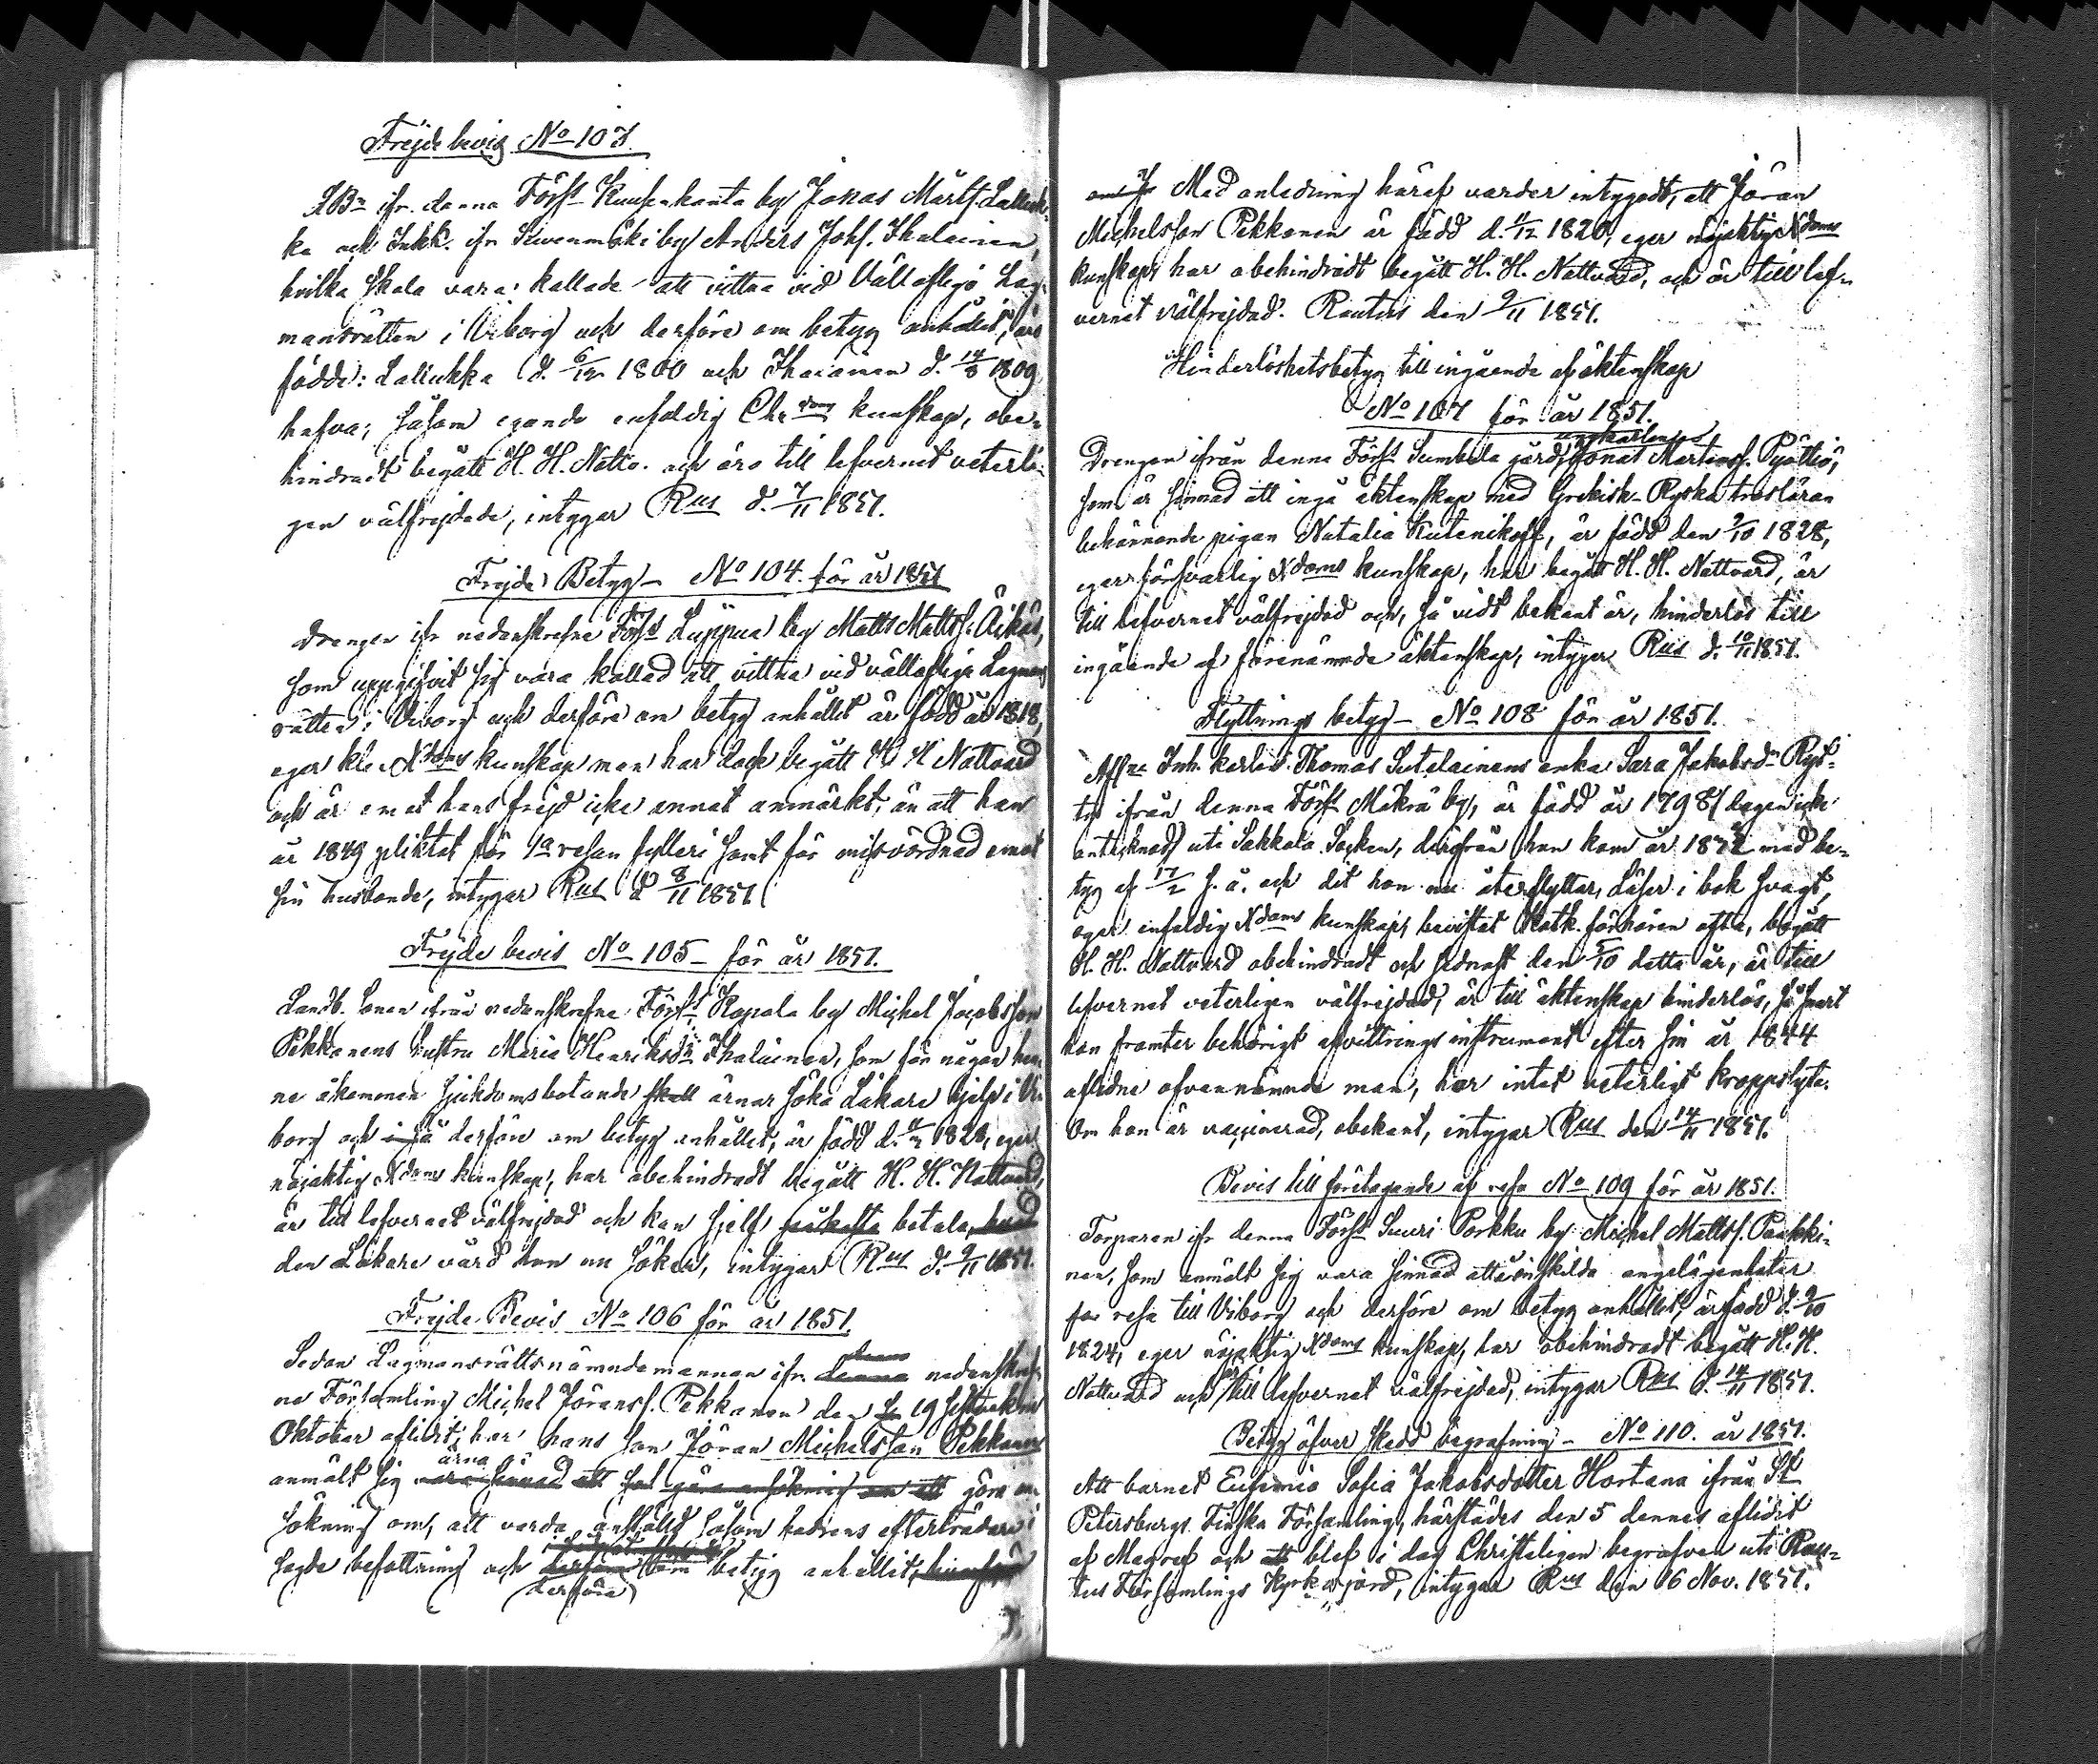 Frejde bevis No 103.
LBn ifr. denna Förs:t Kuusenkanta by Jonas Mårts. Lalluk-
ka och Inhk. ifr Siwenmäki by Anders Johs. Ihalainen,
hvilka skola vara kallade att vittna vid Vällofliga Lag-
mansrätten i Viborg och derföre om betyg anhållit, äro
födde: Lallukka d. 6/12 1800 och Ihalainen d. 14/8 1809
hafva, såsom egande enfaldig Chr:doms kunskap, obe-
hindradt begått H. H. Nattv. och äro till lefvernet veterli-
gen välfrejdade, intygar Rus d. 7/11 1851.
Frejde Betyg - No 104. för år 1851
Drengen ifr nedanskrefne Förs:t Lyppua by Matts Matts:s. Äikäs,
som uppgifvit sig vara kallad att vittna vid vällofliga Lagmans
rätten i Viborg och derföre om betyg anhållit är född år 1818,
eger klen Xdoms kunskap men har dock begått H. H. Nattvard
och är emot hans frejd icke annat anmärkt, än att han
år 1849 pliktat för 1a resan fylleri samt för missvördnad emot
sin husbonde, intygar Rus d. 8/11 1851
Frejde bevis No 105 - för år 1851.
Landb. sonen ifrån nedanskrefne Förs:t Kopala by Michel Jacobsson
Pekkanens hustru Maria Henriksdr Ihalainen, som för någon hen-
ne åkommen sjukdoms botande skall ärnar söka Läkare hjelp i Vi-
borg och i så derföre om betyg anhållit, är född d. 11/2 1820, eger
nöjaktig Xdoms kunskap, har obehindradt begått H. H. Nattvard,
är till lefvernet välfrejdad och kan sjelf betala
den Läkare vård hon nu söker, intygar Rus d. 9/11 1851.
Frejde Bevis No 106 för år 1851.
Sedan Lagmansrättsnämndemannen ifr. denna nedanskref-
ne Församling Michel Jöranss. Pekkanen den 19 sistvekne
Oktober aflidit, har hans son Jöran Michelsson Pekkanen
anmält sig ärna göra an-
sökning om, att varda anställd såsom hadrens efterträdare i
sagde befattning och derföre om betyg anhållit,
Med anledning häraf varder intygadt, att Jöran
Michelsson Pekkanen är född d. 4/12 1820, eger nöjaktig Xdoms
kunskap, har obehindradt begått H. H. Nattvard, och är till lef-
vernet välfrejdad. Rautus den 9/11 1851.
Hinderlöshetsbetyg till ingående af äktenskap
No 107 för år 1851.
Drengen ifrån denna Förs:t Sumbula gård, ungkarlen Jonas Martinss. Pyöttiö,
som är sinnad att ingå äktenskap med Grekisk-Ryska trosläran
bekännande pigan Natalia Kutenikoff, är född den 9/10 1828,
eger försvarlig Xdoms kunskap, har begått H. H. Nattvard, är
till lefvernet välfrejdad och, så vidt bekant är, hinderlös till
ingående af förenämnde äktenskap, intygar Rus d. 10/11 1851.
Flyttnings betyg - No 108 för år 1851.
Afl:ne Inh. karlen Thomas Sutelainens enka Sara Jakobsdr Rys-
tu ifrån denna Förs:t Mäkrä by, är född år 1798/ dagen icke
antecknad/ uti Sakkola Socken, därifrån hon kom år 1832 med be-
tyg af 17/2 s. å. och dit hon nu återflyttar, Läser i bok svagt,
eger enfaldig Xdoms kunskap, bevistat Katk. förhören ofta, begått
H. H. Nattvard obehindradt och sednast den 5/10 detta år, är till
lefvernet veterligen välfrejdad, är till äktenskap hinderlös, så snart
hon framter behörigt afvittrings instrument efter sin år 1844
aflidne ofvannämnde man, har intet veterligt kroppslyte.
Om hon är vaccinerad, obekant, intygar Rus den 14/11 1851.
Bevis till företagande af resa No 109 för år 1851.
Torparen ifr denna Förs:t Suuri Porkku by Michel Matts:s. Paukki-
nen, som anmält sig vara sinnad att i enskilda angelägenheter
resa till Viborg och derföre om betyg anhållit, är född d. 9/10
1824, eger nöjaktig Xdoms kunskap, har obehindradt begått H. H.
Nattvard och är till lefvernet välfrejdad, intygar Rus d. 14/11 1851.
Betyg öfver skedd begrafning - No 110. år 1851.
Att barnet Eufemia Sofia Jakobsdotter Hortana ifrån St
Petersburgs Finska Församling, härstädes den 5 dennes aflidit
af Magref och att blef i dag Christeligen begrafven uti Rau-
tus Församlings Kyrkogård, intygar Rus den 16 Nov. 1851.